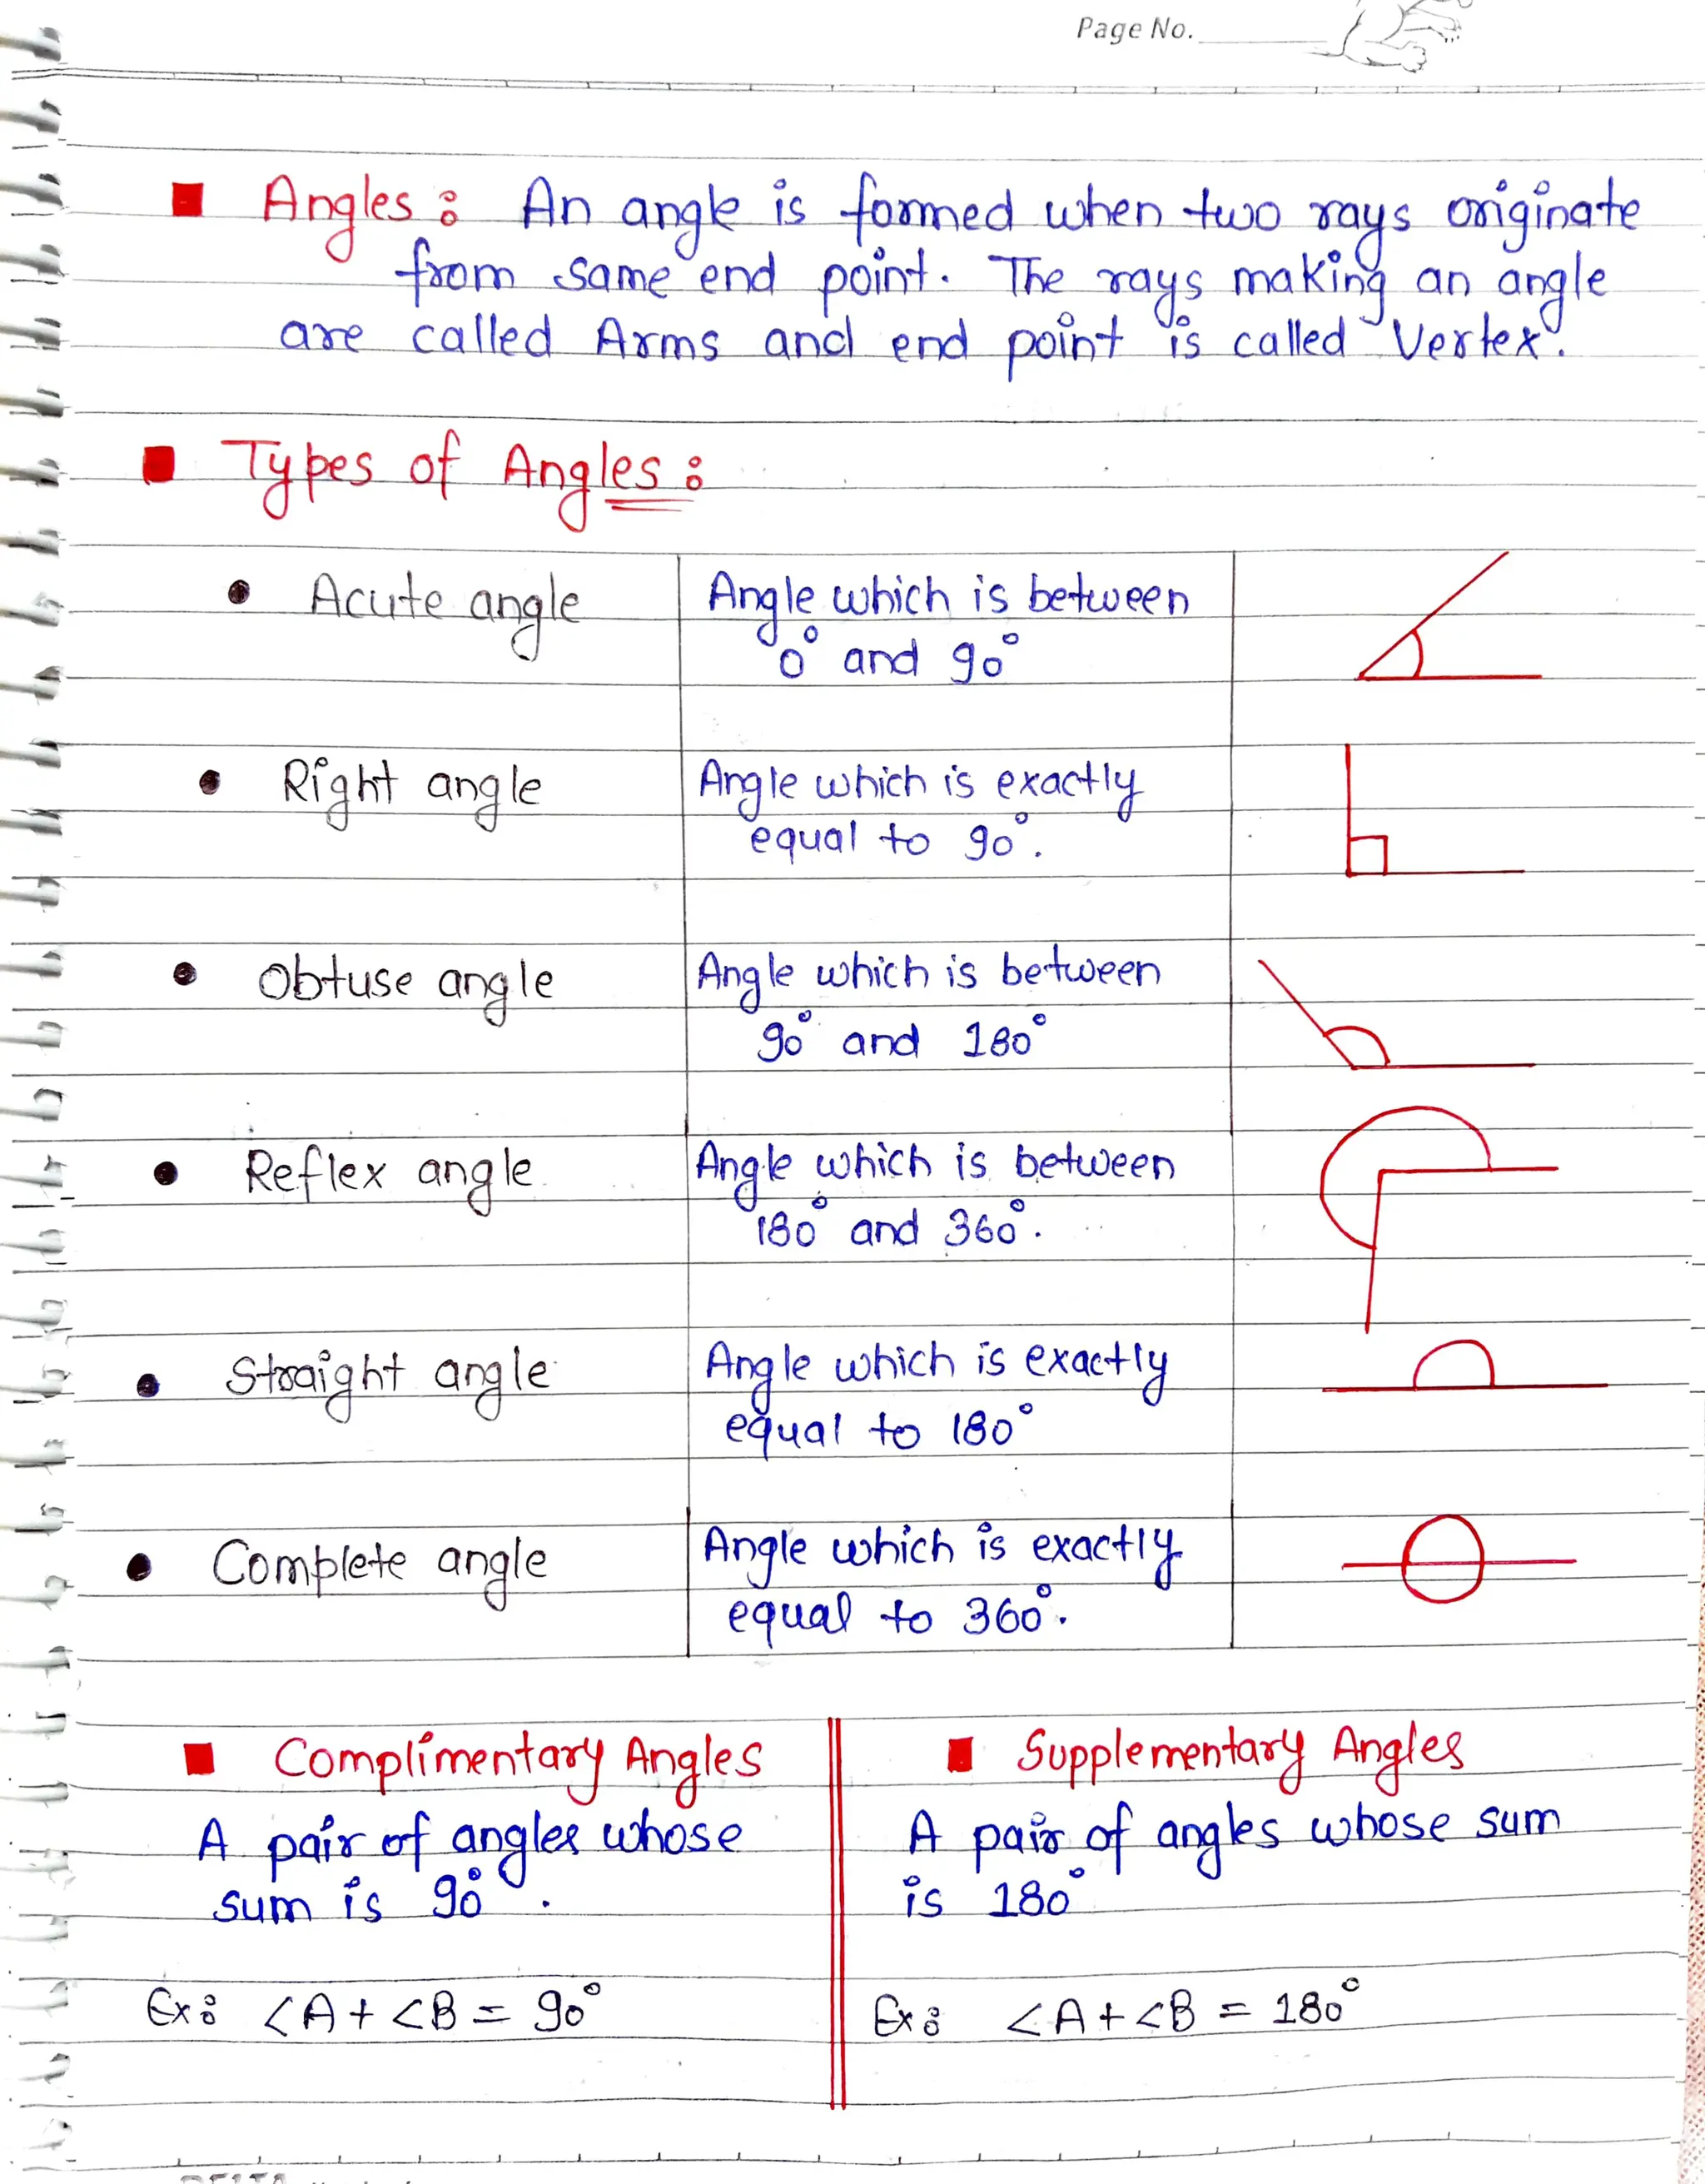 Page No.
Angles : An angle is formed when two rays originate
from same end point. The rays making an angle
are called Arms and end point is called Vertex.
Types of Angles :
• Acute angle
Angle which is between
0° and 90°
• Right angle
Angle which is exactly
equal to 90°.
• Obtuse angle
Angle which is between
90° and 180°
• Reflex angle
Angle which is between
180° and 360°.
• Straight angle
Angle which is exactly
equal to 180°
• Complete angle
Angle which is exactly
equal to 360°.
Complimentary Angles
A pair of angles whose
sum is 90°.
Ex: ∠A + ∠B = 90°
Supplementary Angles
A pair of angles whose sum
is 180°
Ex: ∠A + ∠B = 180°